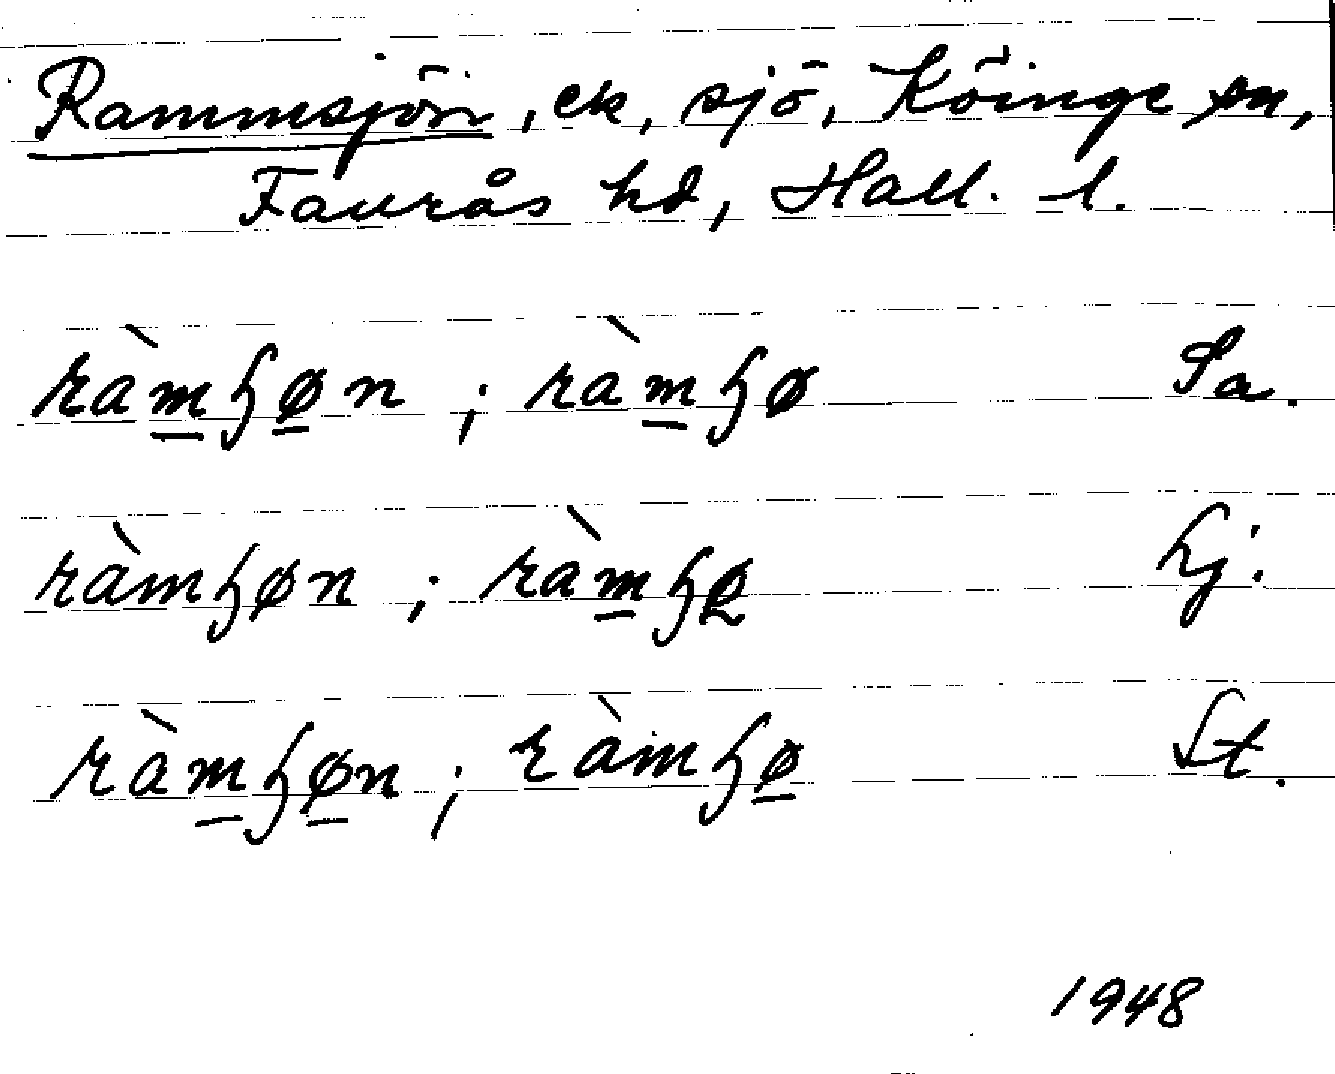 Rammsjön, ek, sjö, Köinge sn,
Faurås hd, Hall. l.
ràmɧøn ; ràmɧø Sa.
ràmɧøn ; ràmɧø Lj.
ràmɧøn ; ràmɧø St.
1948